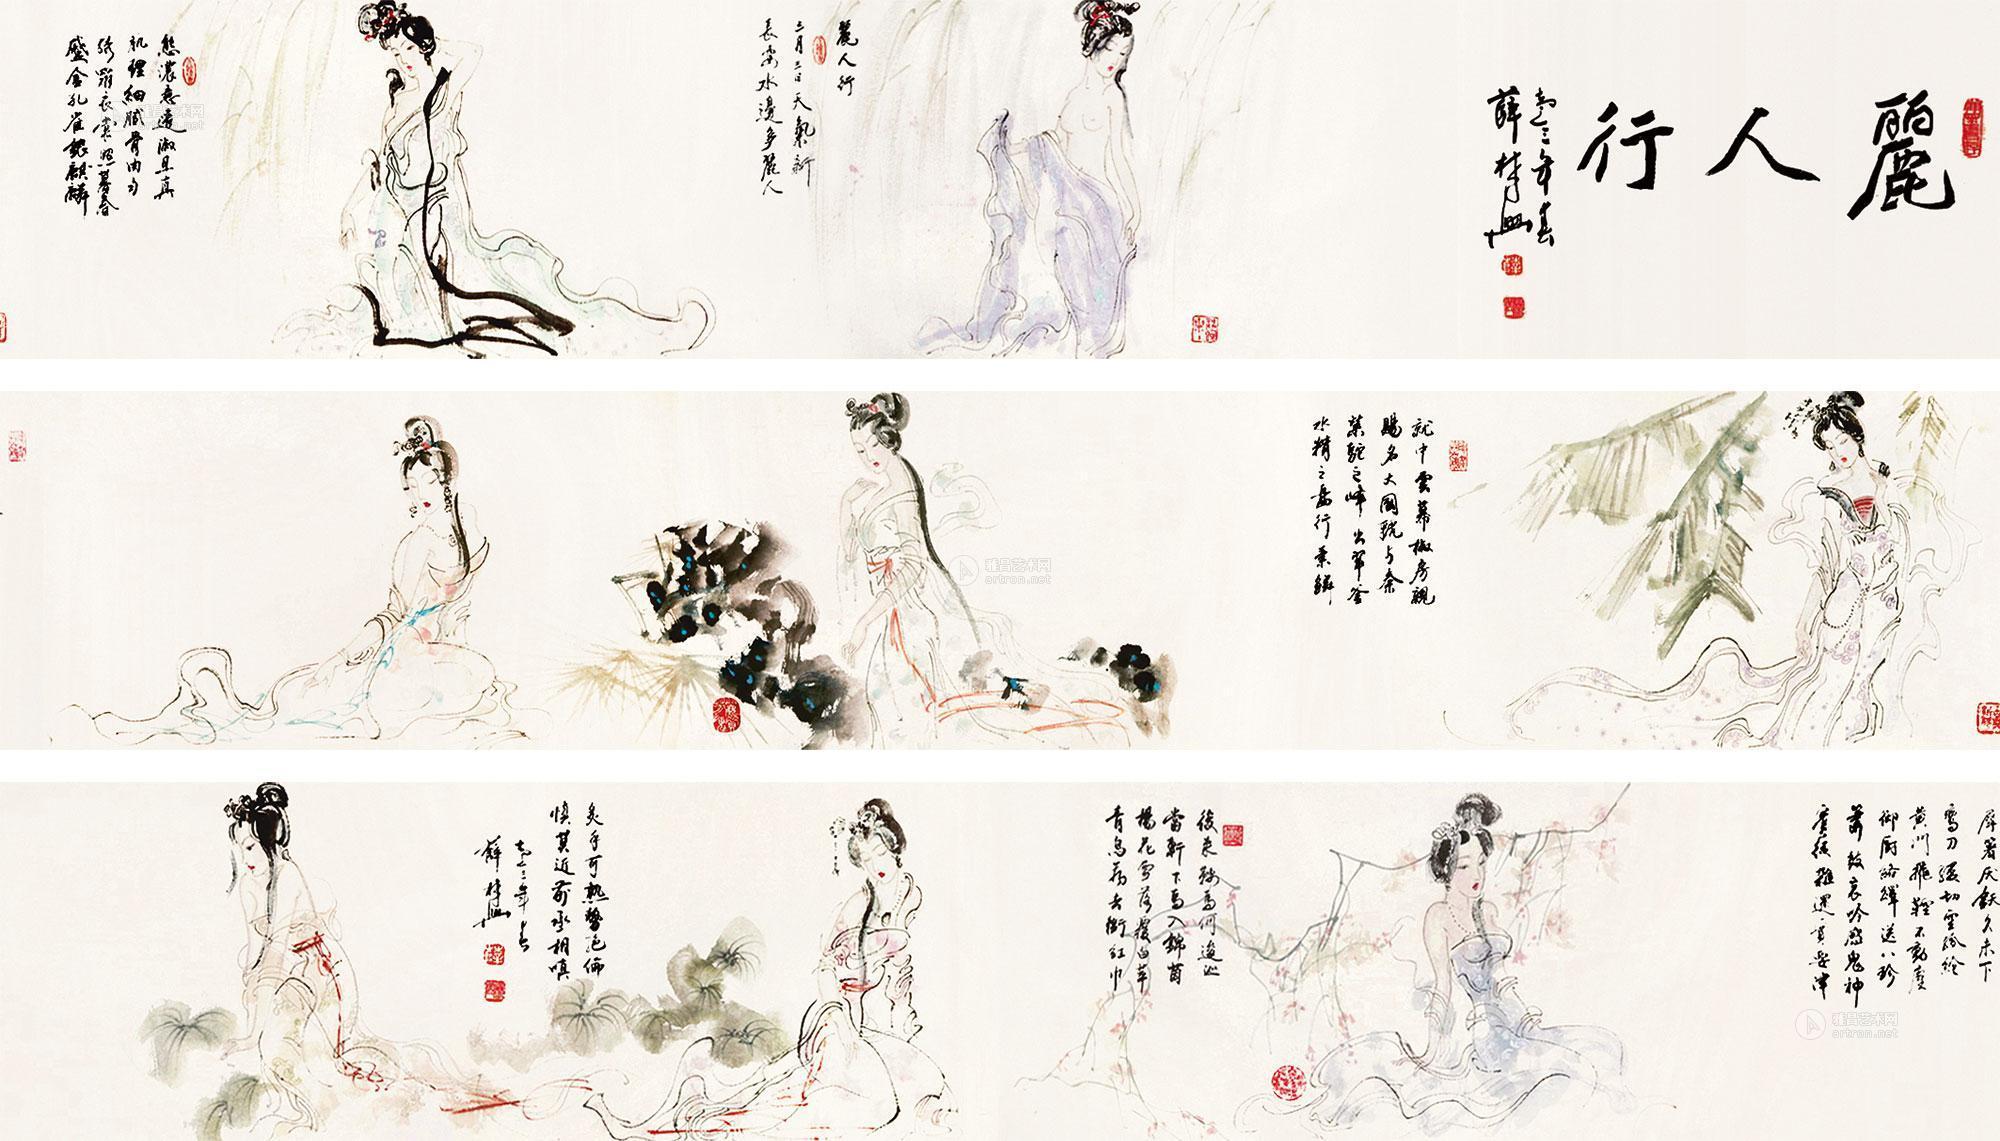 麗人行
薛林興
麗人行
三月三日天氣新
長安水邊多麗人
態濃意遠淑且真
肌理細膩骨肉勻
繡羅衣裳照暮春
蹙金孔雀銀麒麟
就中雲幕椒房親
賜名大國虢与秦
紫駝之峰出翠釜
水精之盤行素鱗
犀箸厌飫久未下
鸞刀縷切空紛綸
黄門飛鞚不動塵
御厨絡繹送八珍
簫鼓哀吟感鬼神
賓從雜遝實要津
後來鞍馬何逡巡
當軒下馬入錦茵
楊花雪落覆白蘋
青鳥飛去銜红巾
炙手可熱勢絶倫
慎莫近前丞相嗔
薛林興
雅昌艺术网
artron.net
雅昌艺术网
artron.net